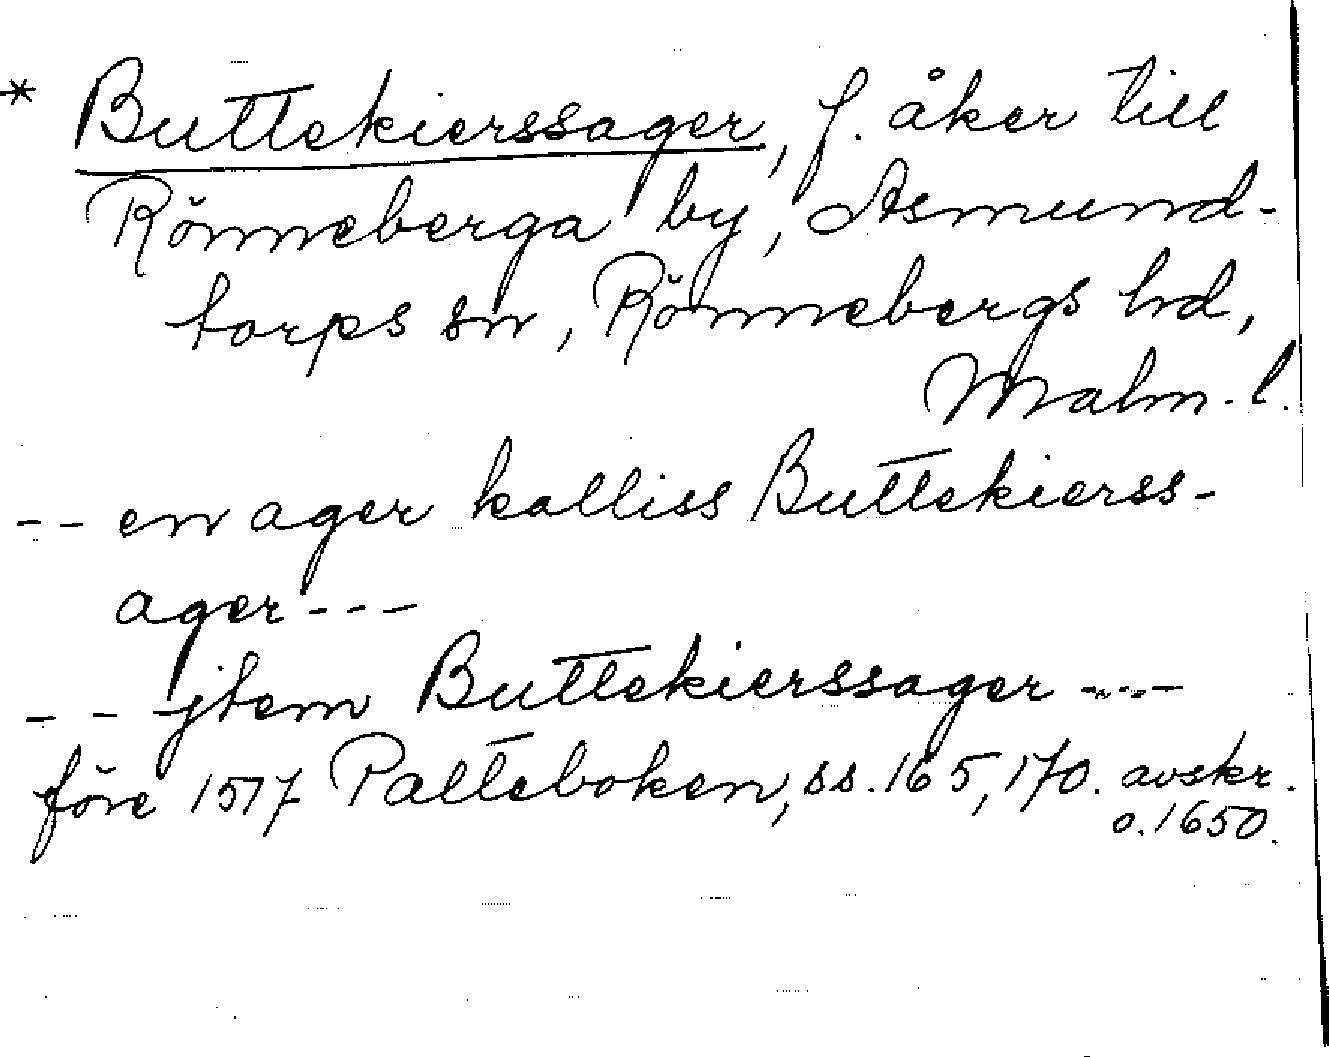 * Buttekierssager, f. åker till
Rönneberga by, Asmund-
torps sn, Rönnebergs hd,
Malm. l.
-- en ager kalliss Buttekierss-
ager ---
-- jtem Buttekierssager ---
före 1517 Palteboken, ss. 165, 170. avskr.
o. 1650.